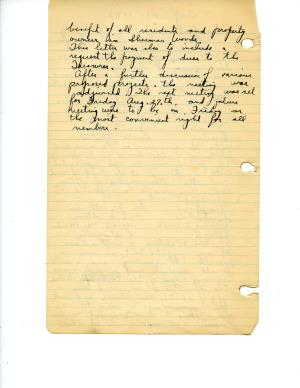 benefit of all residents and property
owners in Sherman Woods.
This letter was also to include a
request the payment of dues to the
Treasurer.
After a further discussion of various
proposed projects, the meeting was
adjourned. The next meeting was set
for Friday Aug 27th, and future
meetings were to be on Friday as
the most convenient night for all
members.